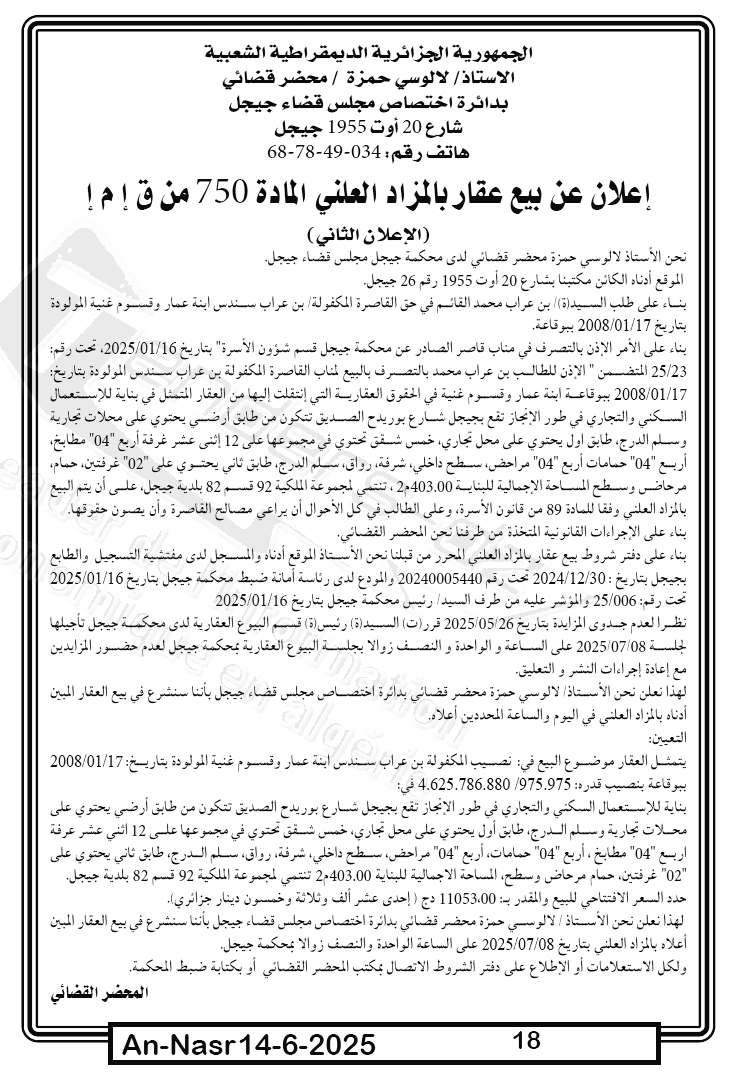 الجمهورية الجزائرية الديمقراطية الشعبية
الاستاذ/ لالوسي حمزة / محضر قضائي
بدائرة اختصاص مجلس قضاء جيجل
شارع 20 أوت 1955 جيجل
هاتف رقم: 034-49-78-68
إعلان عن بيع عقار بالمزاد العلني المادة 750 من ق إ م إ
(الإعلان الثاني)
نحن الأستاذ لالوسي حمزة محضر قضائي لدى محكمة جيجل مجلس قضاء جيجل.
الموقع أدناه الكائن مكتبنا بشارع 20 أوت 1955 رقم 26 جيجل.
بناء على طلب السيد(ة)/ بن عراب محمد القائم في حق القاصرة المكفولة/ بن عراب سندس ابنة عمار وقسوم غنية المولودة
بتاريخ 2008/01/17 ببوقاعة.
بناء على الأمر الإذن بالتصرف في مناب قاصر الصادر عن محكمة جيجل قسم شؤون الأسرة" بتاريخ 2025/01/16، تحت رقم:
25/23 المتضمن " الإذن للطالب بن عراب محمد بالتصرف بالبيع لمناب القاصرة المكفولة بن عراب سندس المولودة بتاريخ:
2008/01/17 ببوقاعة ابنة عمار وقسوم غنية في الحقوق العقارية التي إنتقلت إليها من العقار المتمثل في بناية للإستعمال
السكني والتجاري في طور الإنجاز تقع بجيجل شارع بوريدح الصديق تتكون من طابق أرضي يحتوي على محلات تجارية
وسلم الدرج، طابق اول يحتوي على محل تجاري، خمس شقق تحتوي في مجموعها على 12 إثنى عشر غرفة أربع "04" مطابخ،
أربع "04" حمامات أربع "04" مراحض، سطح داخلي، شرفة، رواق، سلم الدرج، طابق ثاني يحتوي على "02" غرفتين، حمام،
مرحاض وسطح المساحة الإجمالية للبناية 403.00م2 ، تنتمي لمجموعة الملكية 92 قسم 82 بلدية جيجل، على أن يتم البيع
بالمزاد العلني وفقا للمادة 89 من قانون الأسرة، وعلى الطالب في كل الأحوال أن يراعي مصالح القاصرة وأن يصون حقوقها.
بناء على الإجراءات القانونية المتخذة من طرفنا نحن المحضر القضائي.
بناء على دفتر شروط بيع عقار بالمزاد العلني المحرر من قبلنا نحن الأستاذ الموقع أدناه والمسجل لدى مفتشية التسجيل والطابع
بجيجل بتاريخ : 2024/12/30 تحت رقم 20240005440 والمودع لدى رئاسة أمانة ضبط محكمة جيجل بتاريخ 2025/01/16
تحت رقم: 25/006 والمؤشر عليه من طرف السيد/ رئيس محكمة جيجل بتاريخ 2025/01/16
نظرا لعدم جدوى المزايدة بتاريخ 2025/05/26 قرر(ت) السيد(ة) رئيس(ة) قسم البيوع العقارية لدى محكمة جيجل تأجيلها
لجلسة 2025/07/08 على الساعة و الواحدة و النصف زوالا بجلسة البيوع العقارية بمحكمة جيجل لعدم حضور المزايدين
مع إعادة إجراءات النشر و التعليق.
لهذا نعلن نحن الأستاذ/ لالوسي حمزة محضر قضائي بدائرة اختصاص مجلس قضاء جيجل بأننا سنشرع في بيع العقار المبين
أدناه بالمزاد العلني في اليوم والساعة المحددين أعلاه.
التعيين:
يتمثل العقار موضوع البيع في: نصيب المكفولة بن عراب سندس ابنة عمار وقسوم غنية المولودة بتاريخ: 2008/01/17
ببوقاعة بنصيب قدره: 975.975/ 4.625.786.880 في:
بناية للإستعمال السكني والتجاري في طور الإنجاز تقع بجيجل شارع بوريدح الصديق تتكون من طابق أرضي يحتوي على
محلات تجارية وسلم الدرج، طابق أول يحتوي على محل تجاري، خمس شقق تحتوي في مجموعها على 12 اثني عشر عرفة
اربع "04" مطابخ ، أربع "04" حمامات، أربع "04" مراحض، سطح داخلي، شرفة، رواق، سلم الدرج، طابق ثاني يحتوي على
"02" غرفتين، حمام مرحاض وسطح، المساحة الاجمالية للبناية 403.00م2 تنتمي لمجموعة الملكية 92 قسم 82 بلدية جيجل.
حدد السعر الافتتاحي للبيع والمقدر بـ: 11053،00 دج ( إحدى عشر ألف وثلاثة وخمسون دينار جزائري).
لهذا نعلن نحن الأستاذ / لالوسي حمزة محضر قضائي بدائرة اختصاص مجلس قضاء جيجل بأننا سنشرع في بيع العقار المبين
أعلاه بالمزاد العلني بتاريخ 2025/07/08 على الساعة الواحدة والنصف زوالا بمحكمة جيجل.
ولكل الاستعلامات أو الإطلاع على دفتر الشروط الاتصال بمكتب المحضر القضائي أو بكتابة ضبط المحكمة.
المحضر القضائي
An-Nasr 14-6-2025 18